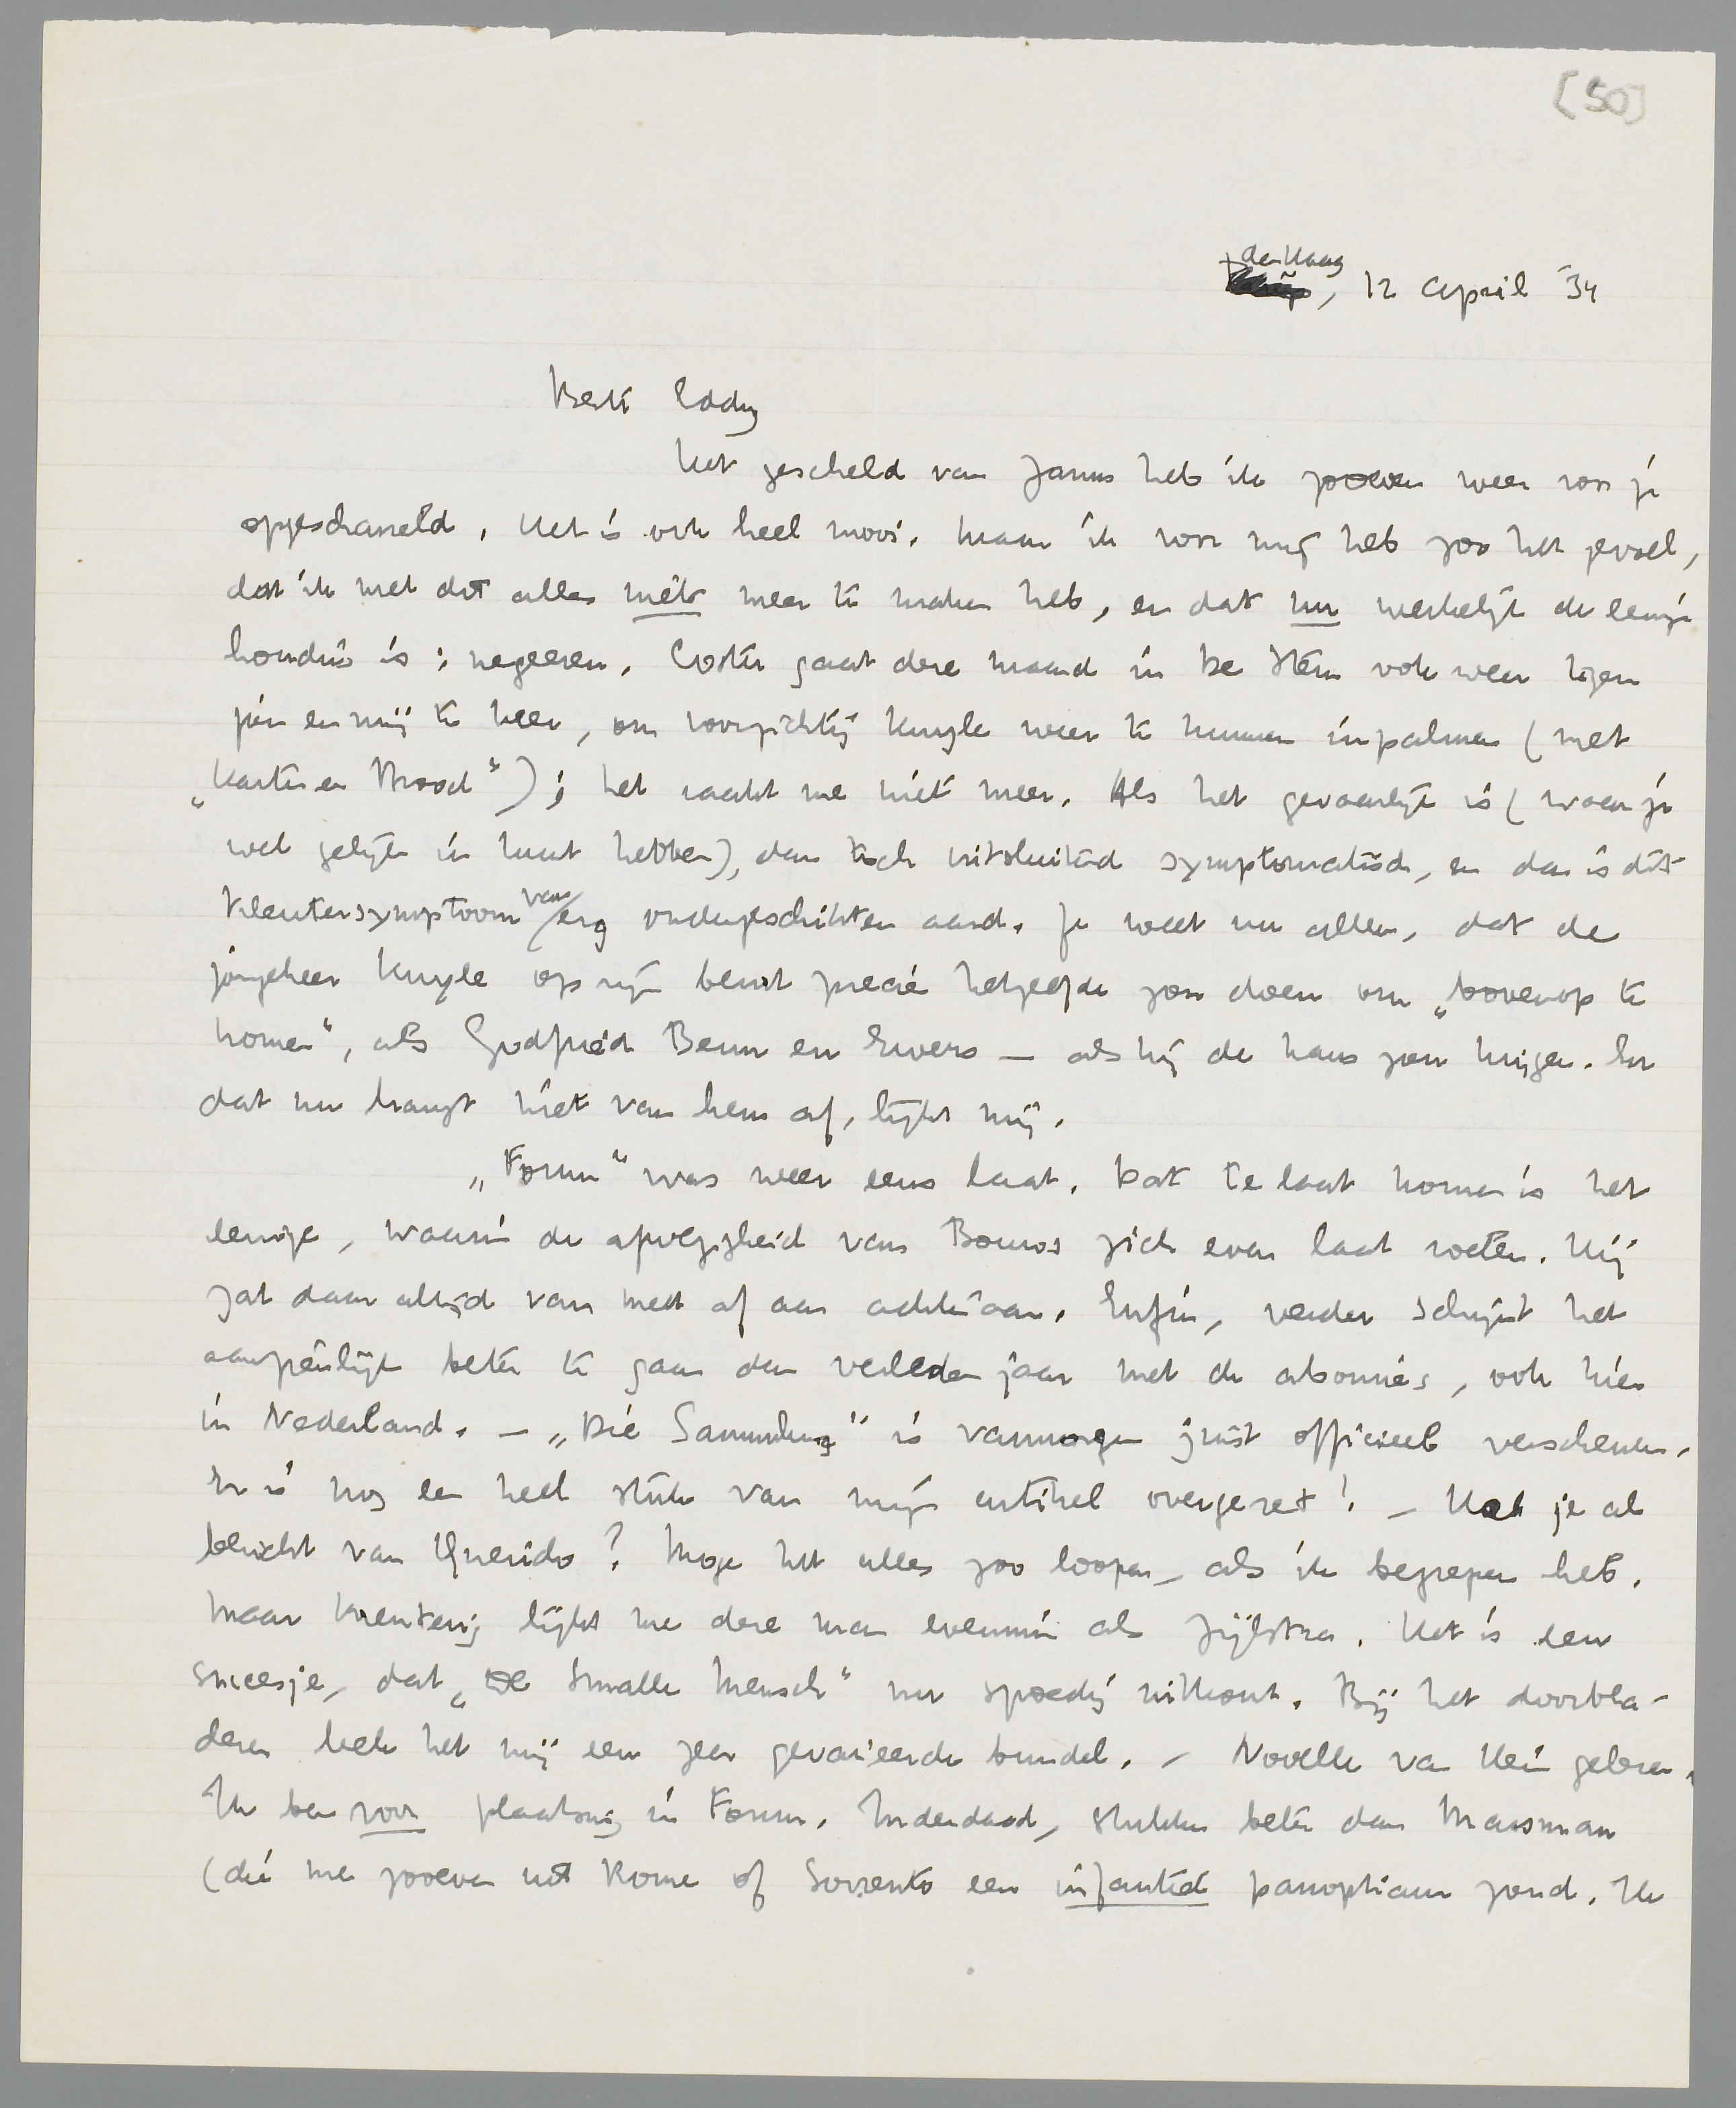 [50]
den Haag
, 12 April '34
Beste Eddy
Het gescheld van Janus heb ik zooeven weer voor je
opgescharreld. Het is ook heel mooi. Maar ik voor mij heb zoo het gevoel,
dat ik met dit alles niets meer te maken heb, en dat nu werkelijk de eenige
houding is: negeeren. Coster gaat deze maand in De Stem ook weer tegen
jou en mij te keer, om voorzichtig Kuyle weer te kunnen inpalmen (met
„Harten en Brood"); het raakt me niet meer. Als het gevaarlijk is (waar je
wel gelijk in kunt hebben), dan toch uitsluitend symptomatisch, en dan is dit
kleutersymptoom van erg ondergeschikten aard. Je weet nu alleen, dat de
jongeheer Kuyle op zijn beurt precies hetzelfde zou doen om „bovenop te
komen", als Godfried Benn en Ewers — als hij de kans zou krijgen. En
dat nu hangt niet van hem af, lijkt mij.
„Forum" was weer eens laat. Dat te laat komen is het
eenige, waarin de afwezigheid van Bouws zich even laat voelen. Hij
zat daar altijd van meet af aan achteraan. Enfin, verder schijnt het
aanzienlijk beter te gaan dan verleden jaar met de abonnés, ook hier
in Nederland. — „Die Sammlung" is vanmorgen juist officieel verschenen.
Er is nog een heel stuk van mijn artikel overgezet! — Had je al
bericht van Querido? Moge het alles zoo loopen, als ik begrepen heb.
Maar krenterig lijkt me deze man evenmin als Zijlstra. Het is een
succesje, dat „De Smalle Mensch" nu spoedig uitkomt. Bij het doorbla-
deren leek het mij een zeer gevarieerde bundel. — Novelle van Hein gelezen.
Ik ben voor plaatsing in Forum. Inderdaad, stukken beter dan Marsman
(die me zooeven uit Rome of Sorrento een infantiel panopticum zond. Ik